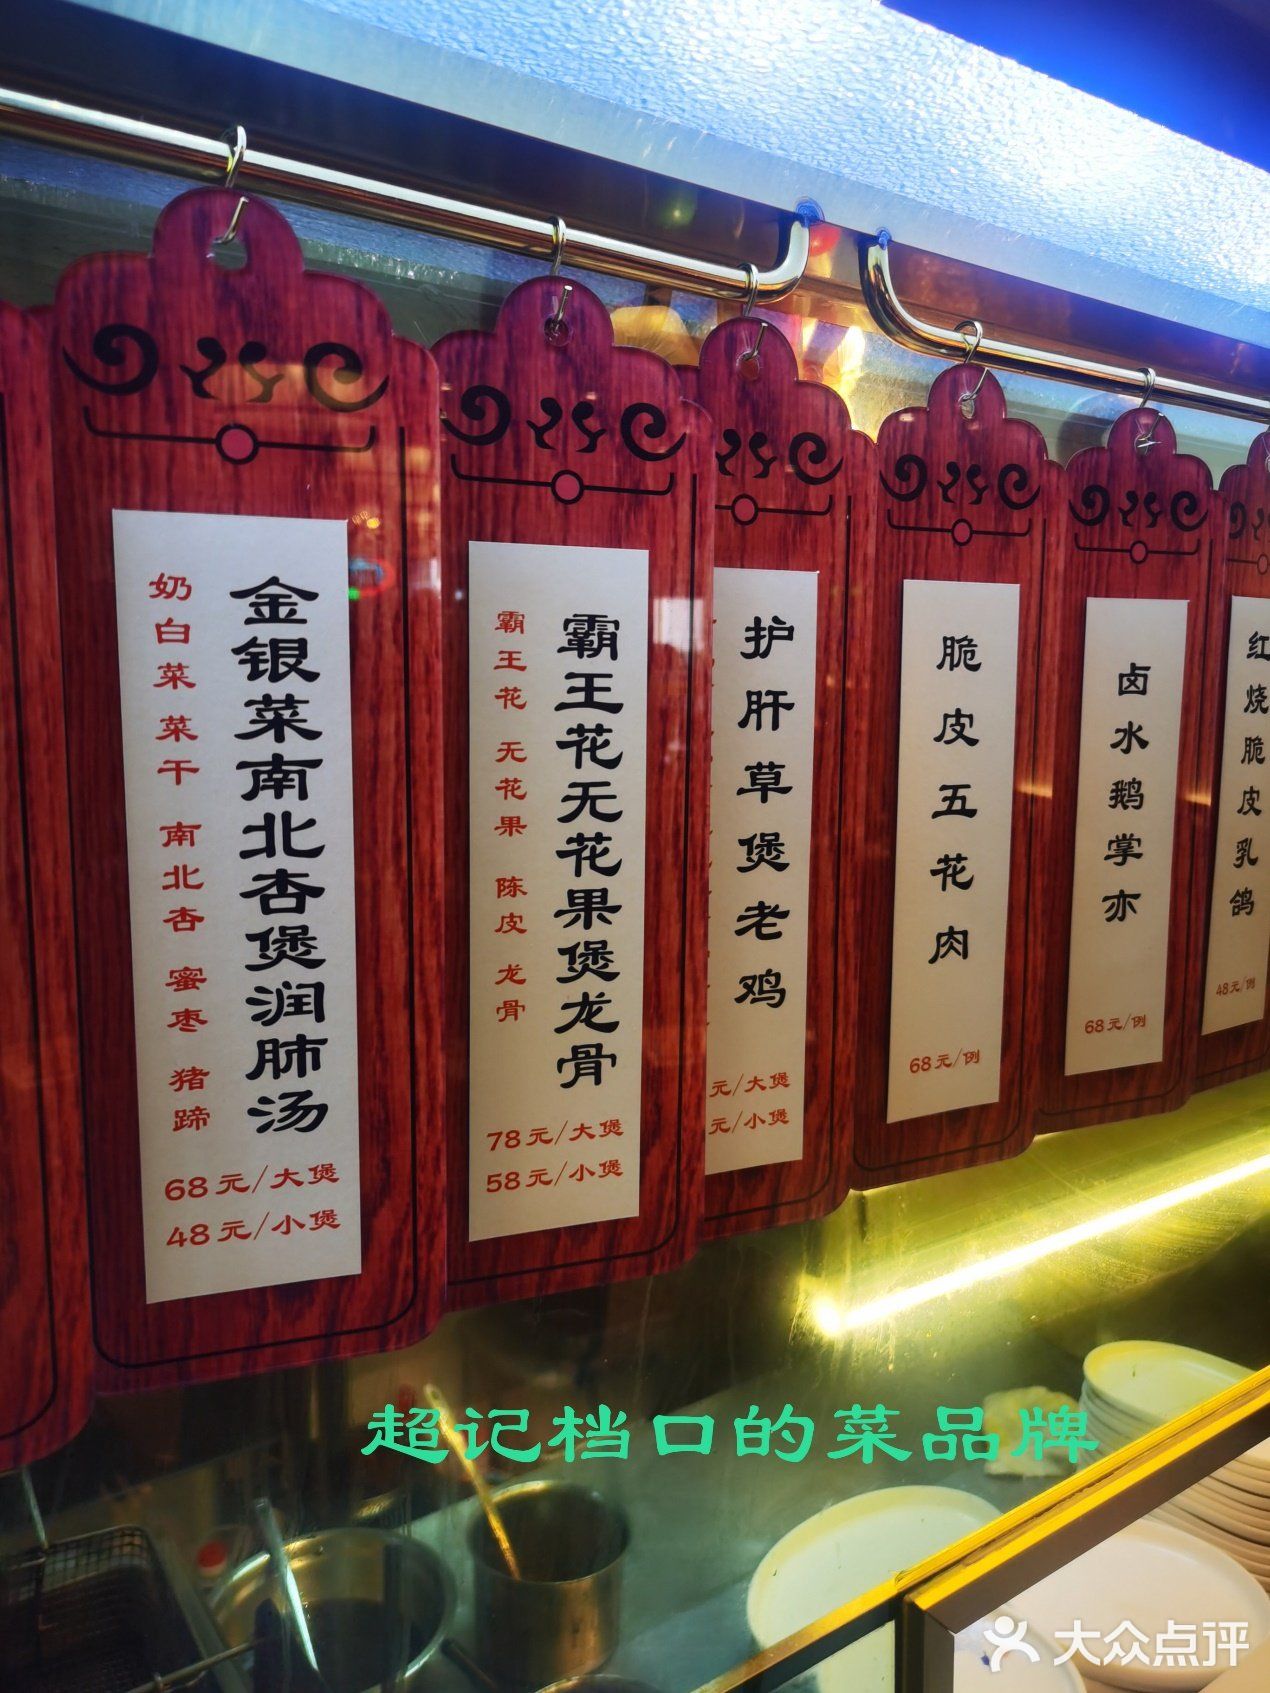 金银菜南北杏煲润肺汤
奶白菜 菜干 南北杏 蜜枣 猪蹄
68元/大煲
48元/小煲
霸王花无花果煲龙骨
霸王花 无花果 陈皮 龙骨
78元/大煲
58元/小煲
护肝草煲老鸡
元/大煲
元/小煲
脆皮五花肉
68元/例
卤水鹅掌亦
68元/例
红烧脆皮乳鸽
48元/例
超记档口的菜品牌
大众点评